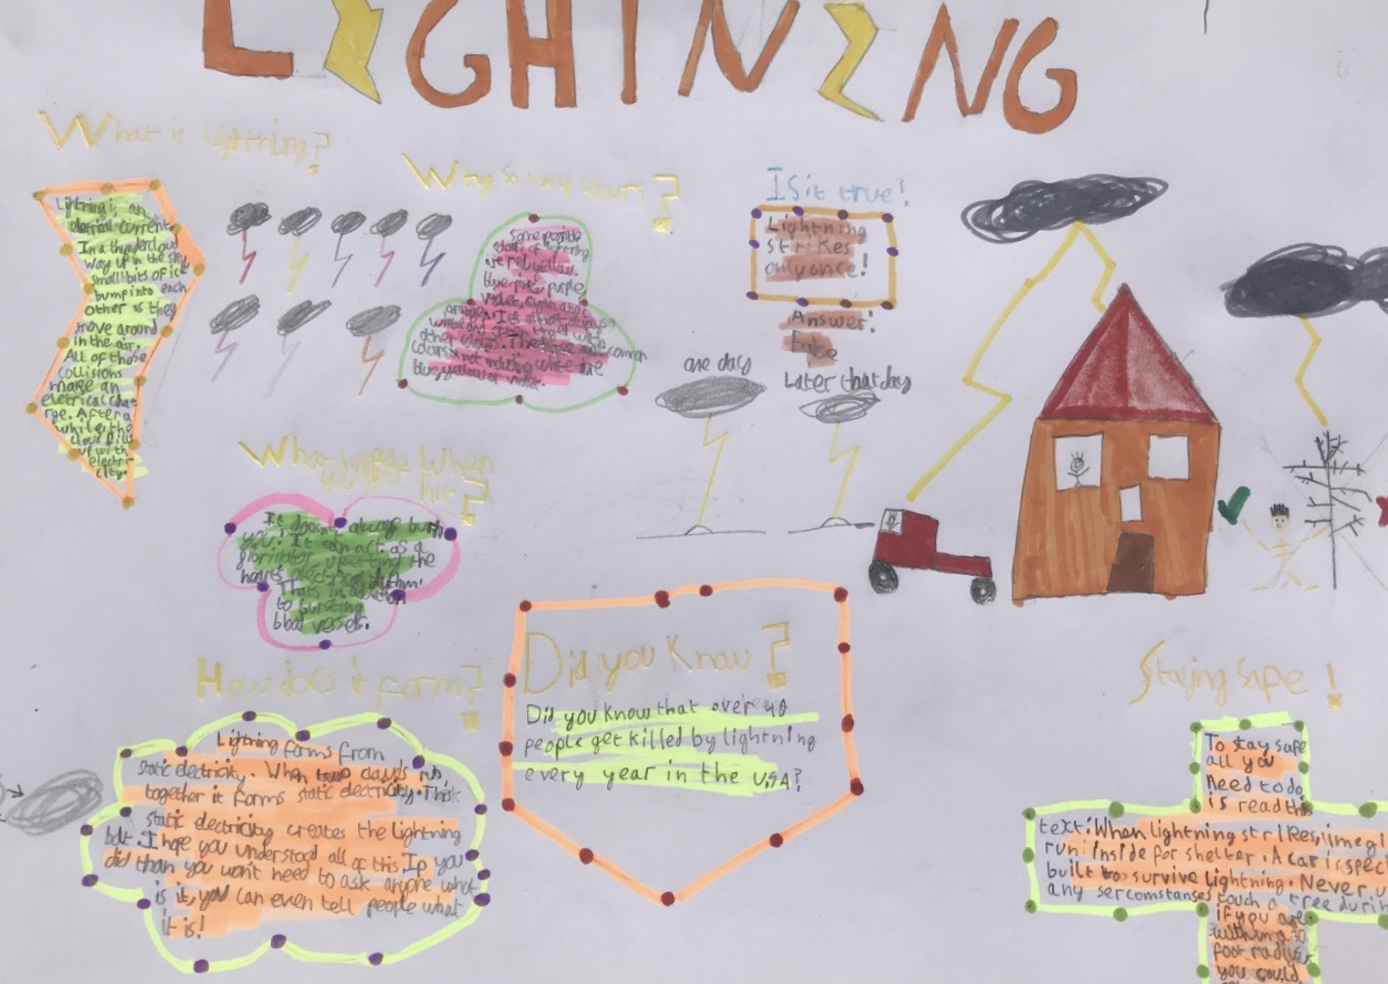 LIGHTNING
What is lightning?
Lightning is an
eletrical current.
In a thundercloud
way up in the sky
small bits of ice
bump into each
other as they
move around
in the air.
All of those
collisions
make an
eletrical cha
rge. After a
while the
cloud fills
up with
electri
city.
Why so many colours?
Some possible
colours of lightning
are red, yellow,
blue, pink, purple,
violet, cyan and
orange. It is almost always
white and
other colours. The three most common
colours not including white are
blue, yellow or violet.
Is it true!
Lightning
strikes
only once!
Answer!
False
one day
Later that day
What happens when
you get hit?
It doesn't always burn
you! It can act as a
the
hearts electrical rhythm!
Thats in addition
to bursting
blood vessels.
How does it form?
Lightning forms from
static electricity. When two clouds rub
together it forms static electricity. This
static electricity creates the lightning
bolt. I hope you understood all of this. If you
did than you won't need to ask anyone what
is it, you can even tell people what
it is!
Did you know?
Did you know that over 40
people get killed by lightning
every year in the USA?
Staying safe!
To stay safe
all you
need to do
is read this
text: When lightning strikes,
run inside for shelter. A car is
built to survive lightning. Never
any sercomstanses touch a tree
if you are
within a
foot radius
you could